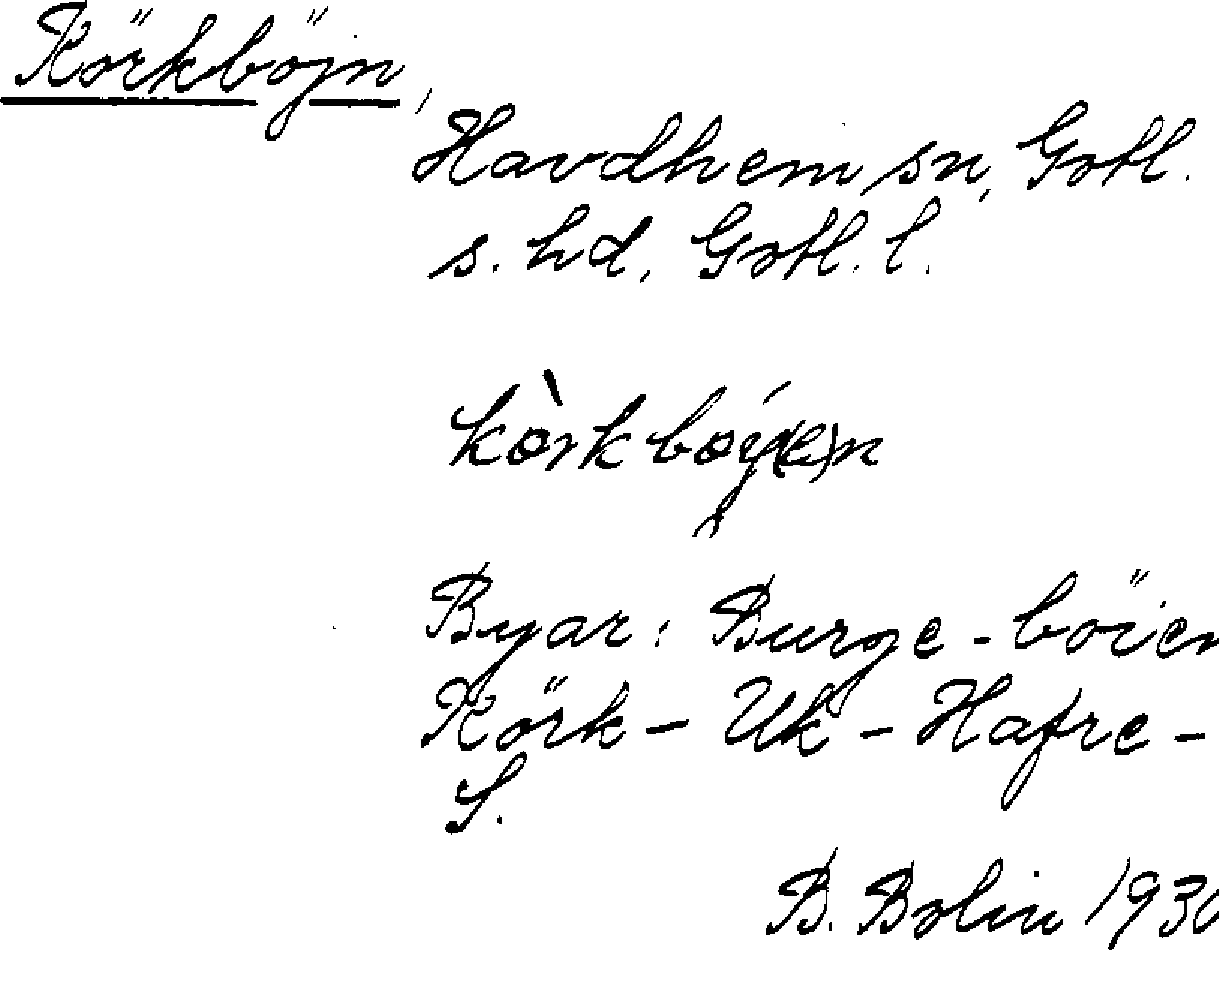 Körkböjn,
Havdhem sn, Gotl.
s. hd, Gotl. l.
kòrkboy(e)n
Byar: Burge-böien
Körk- Uk- Hafre-
S.
B. Bolin 1930